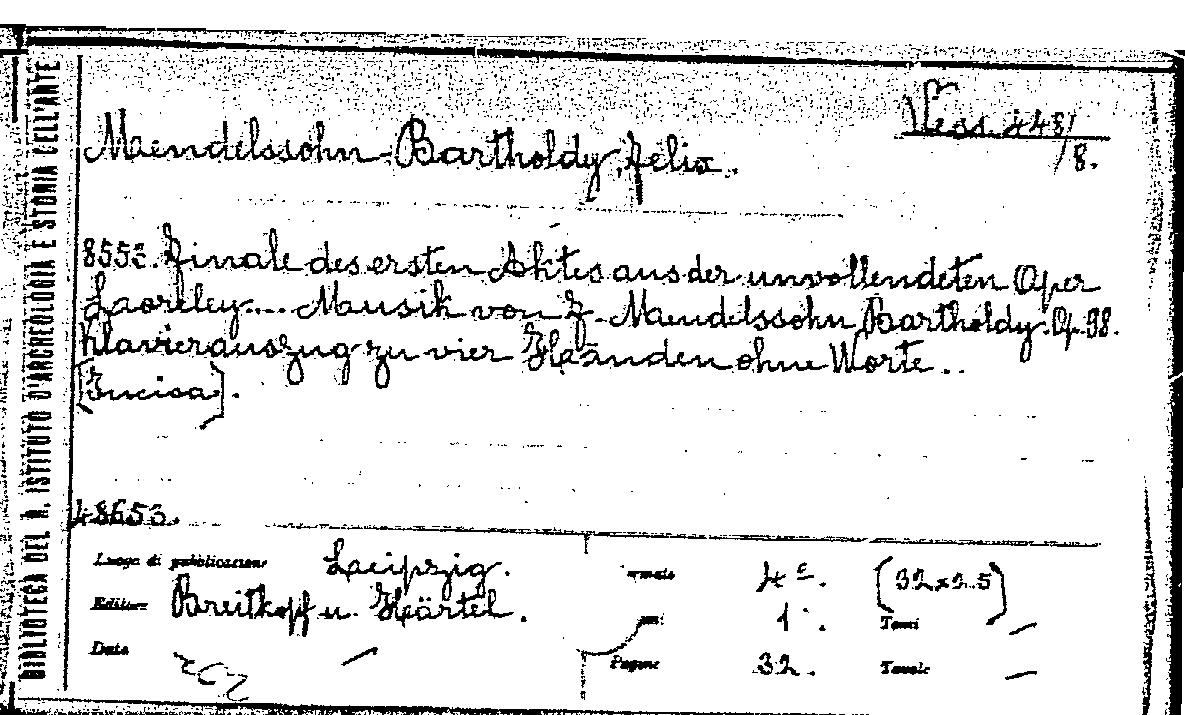 BIBLIOTECA DEL R. ISTITUTO D'ARCHEOLOGIA E STORIA DELL'ARTE
Vess. 448/
/8.
Mendelssohn-Bartholdy, Felix.
8553. Finale des ersten Aktes aus der unvollendeten Oper
Loreley.... Musik von F. Mendelssohn Bartholdy. Op. 98.
Klavierauszug zu vier Haänden ohne Worte..
[Incisa].
48653.
Luogo di pubblicazione Leipzig. 4°. [32x25]
Editore Breitkopf u. Härtel. 1. Tomi —
Data — Pagine 32. Tavole —